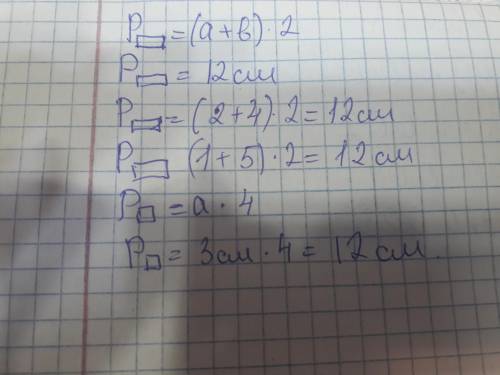 P▭ = (а + в) · 2
P▭ = 12 см
P▭ = (2 + 4) · 2 = 12 см
P▭ (1 + 5) · 2 = 12 см
P□ = а · 4
P□ = 3 см · 4 = 12 см.